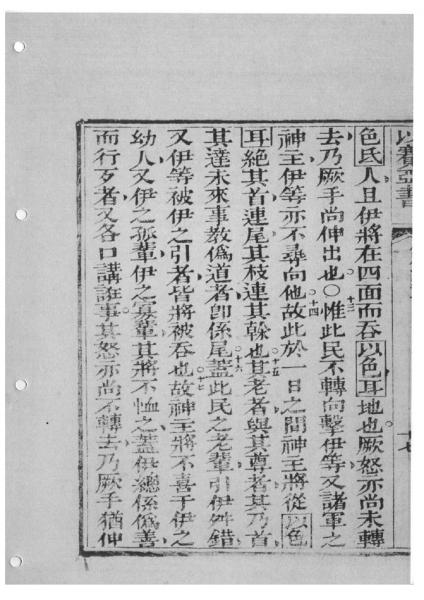 以賽亞書
色氐人且伊將在四面而吞以色耳地也厥怒亦尚未轉
去乃厥手尚伸出也○十三惟此民不轉向擊伊等又諸軍之
神王伊等亦不尋向他十四故此於一日之間神王將從以色
耳絕其首連尾其枝連其榦也十五其老者與其尊者其乃首
其達未來事教僞道者卽係尾十六蓋此民之老輩引伊舛錯
又伊等被伊之引者皆將被吞也十七故神王將不喜于伊之
幼人又伊之孤輩伊之寡輩其將不恤之蓋伊總係僞善
而行歹者又各口講誑事其怒亦尚不轉去乃厥手猶伸